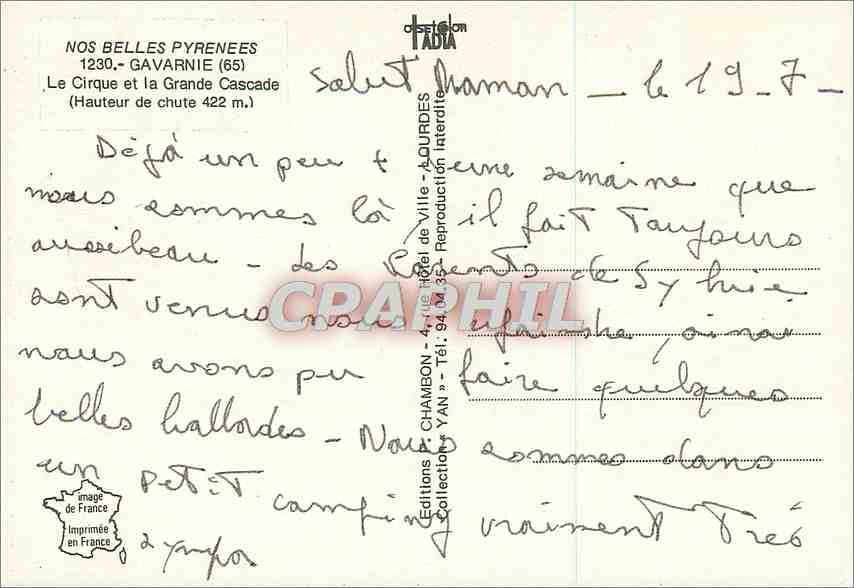 NOS BELLES PYRENEES
1230.- GAVARNIE (65)
Le Cirque et la Grande Cascade
(Hauteur de chute 422 m.)
TADIA
Salut Maman - le 19-7-
Déjà un peu + d'une semaine que
nous sommes là, il fait Toujours
aussi beau - Les Parents de Sylvie
sont venus nous rejoindre, ainsi
nous avons pu faire quelques
belles ballades - Nous sommes dans
un petit camping vraiment Très
sympa
Editions P. CHAMBON - 4, rue Hôtel de Ville - LOURDES
Collection « YAN » - Tél. 94.04.35 - Reproduction interdite
image
de France
Imprimée
en France
CPAPHIL